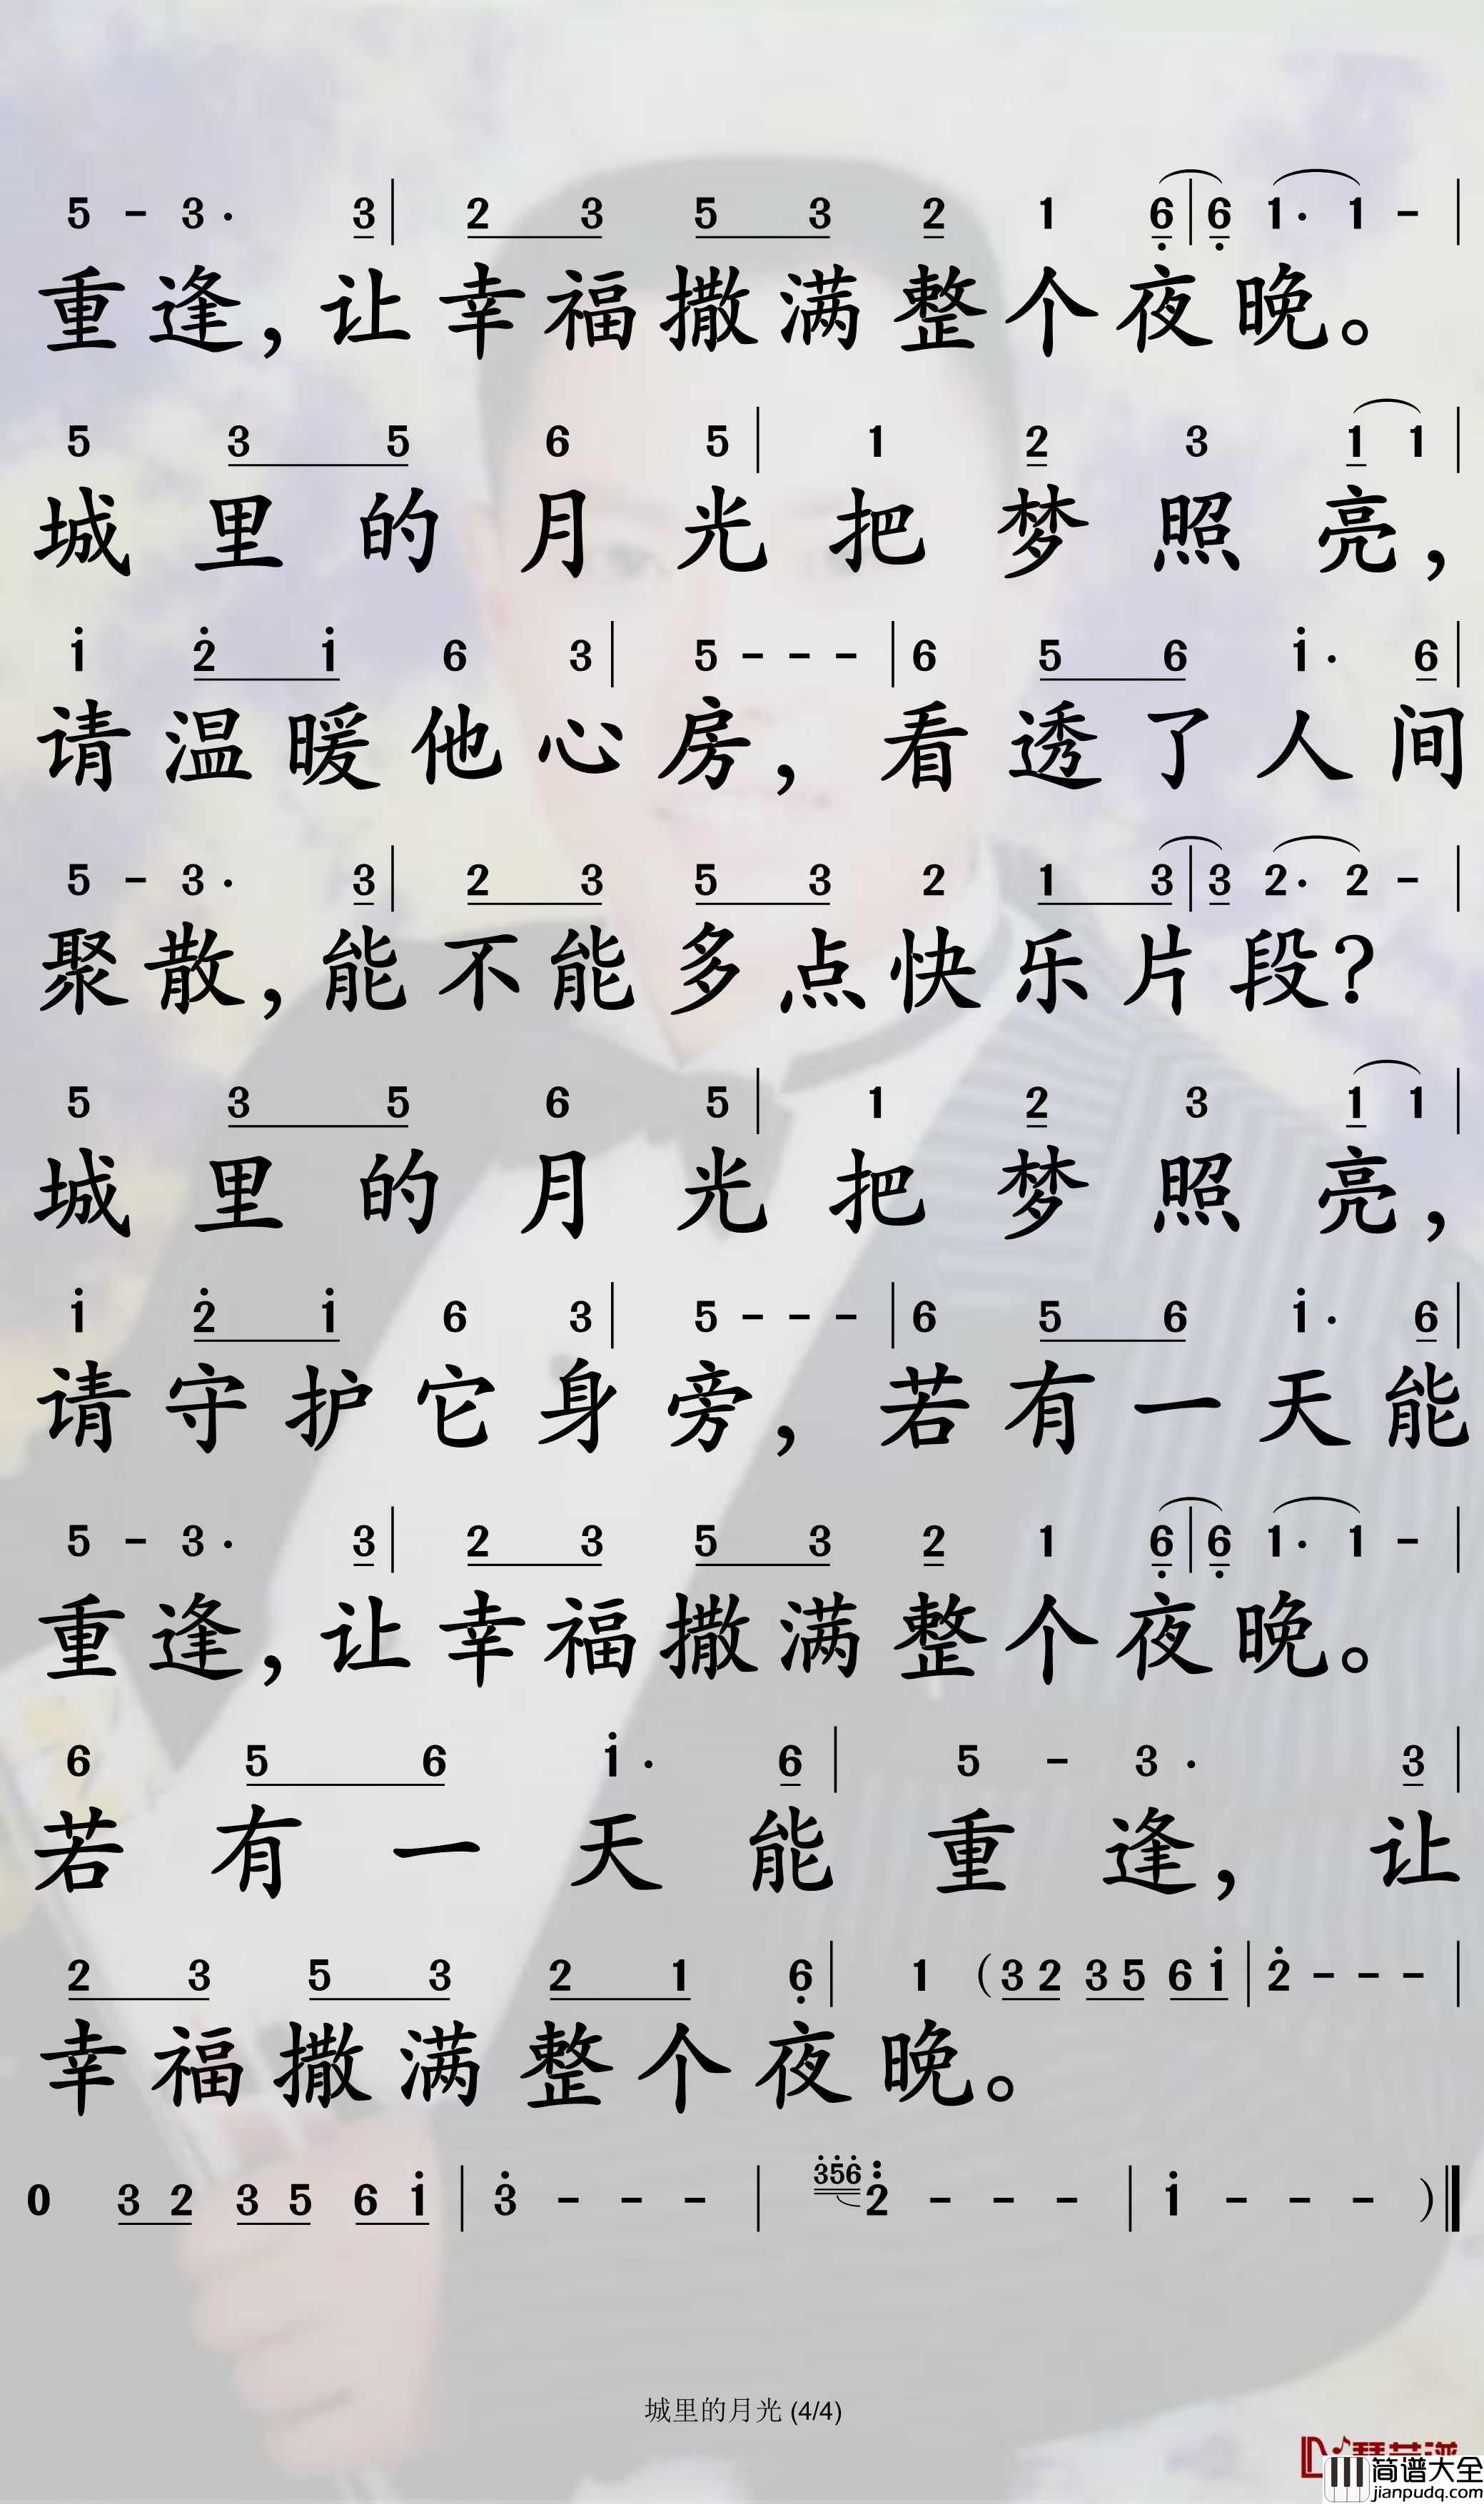 5 - 3. 3 | 2 3 5 3 2 1 6̣ | 6̣ 1. 1 - |
重逢，让幸福撒满整个夜晚。
5 3 5 6 5 | 1 2 3 1 1 |
城里的月光把梦照亮，
1̇ 2̇ 1̇ 6 3 | 5 - - - | 6 5 6 1̇. 6 |
请温暖他心房，看透了人间
5 - 3. 3 | 2 3 5 3 2 1 3 | 3 2. 2 - |
聚散，能不能多点快乐片段？
5 3 5 6 5 | 1 2 3 1 1 |
城里的月光把梦照亮，
1̇ 2̇ 1̇ 6 3 | 5 - - - | 6 5 6 1̇. 6 |
请守护它身旁，若有一天能
5 - 3. 3 | 2 3 5 3 2 1 6̣ | 6̣ 1. 1 - |
重逢，让幸福撒满整个夜晚。
6 5 6 1̇. 6 | 5 - 3. 3 |
若有一天能重逢，让
2 3 5 3 2 1 6̣ | 1 (3 2 3 5 6 1̇ | 2̇ - - - |
幸福撒满整个夜晚。
0 3 2 3 5 6 1̇ | 3̇ - - - | 3̇5̇6̇ 2̈ - - - | 1̇ - - - )
城里的月光 (4/4)
简谱大全
jianpudq.com